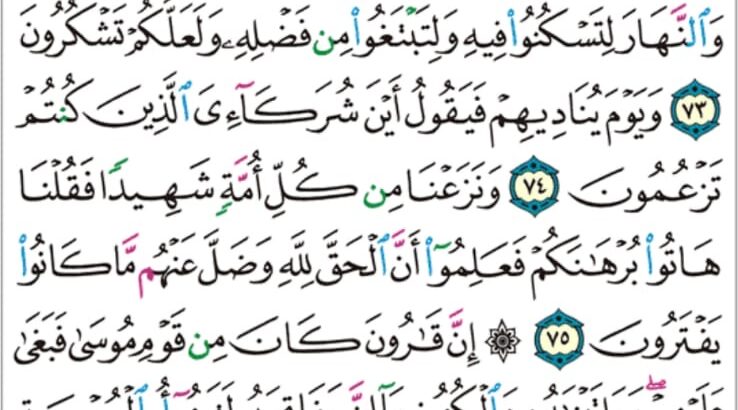 وَٱلنَّهَارَ لِتَسْكُنُوا۟ فِيهِ وَلِتَبْتَغُوا۟ مِن فَضْلِهِۦ وَلَعَلَّكُمْ تَشْكُرُونَ
٧٣ وَيَوْمَ يُنَادِيهِمْ فَيَقُولُ أَيْنَ شُرَكَآءِىَ ٱلَّذِينَ كُنتُمْ
تَزْعُمُونَ ٧٤ وَنَزَعْنَا مِن كُلِّ أُمَّةٍ شَهِيدًا فَقُلْنَا
هَاتُوا۟ بُرْهَـٰنَكُمْ فَعَلِمُوٓا۟ أَنَّ ٱلْحَقَّ لِلَّهِ وَضَلَّ عَنْهُم مَّا كَانُوا۟
يَفْتَرُونَ ٧٥ ۞ إِنَّ قَـٰرُونَ كَانَ مِن قَوْمِ مُوسَىٰ فَبَغَىٰ